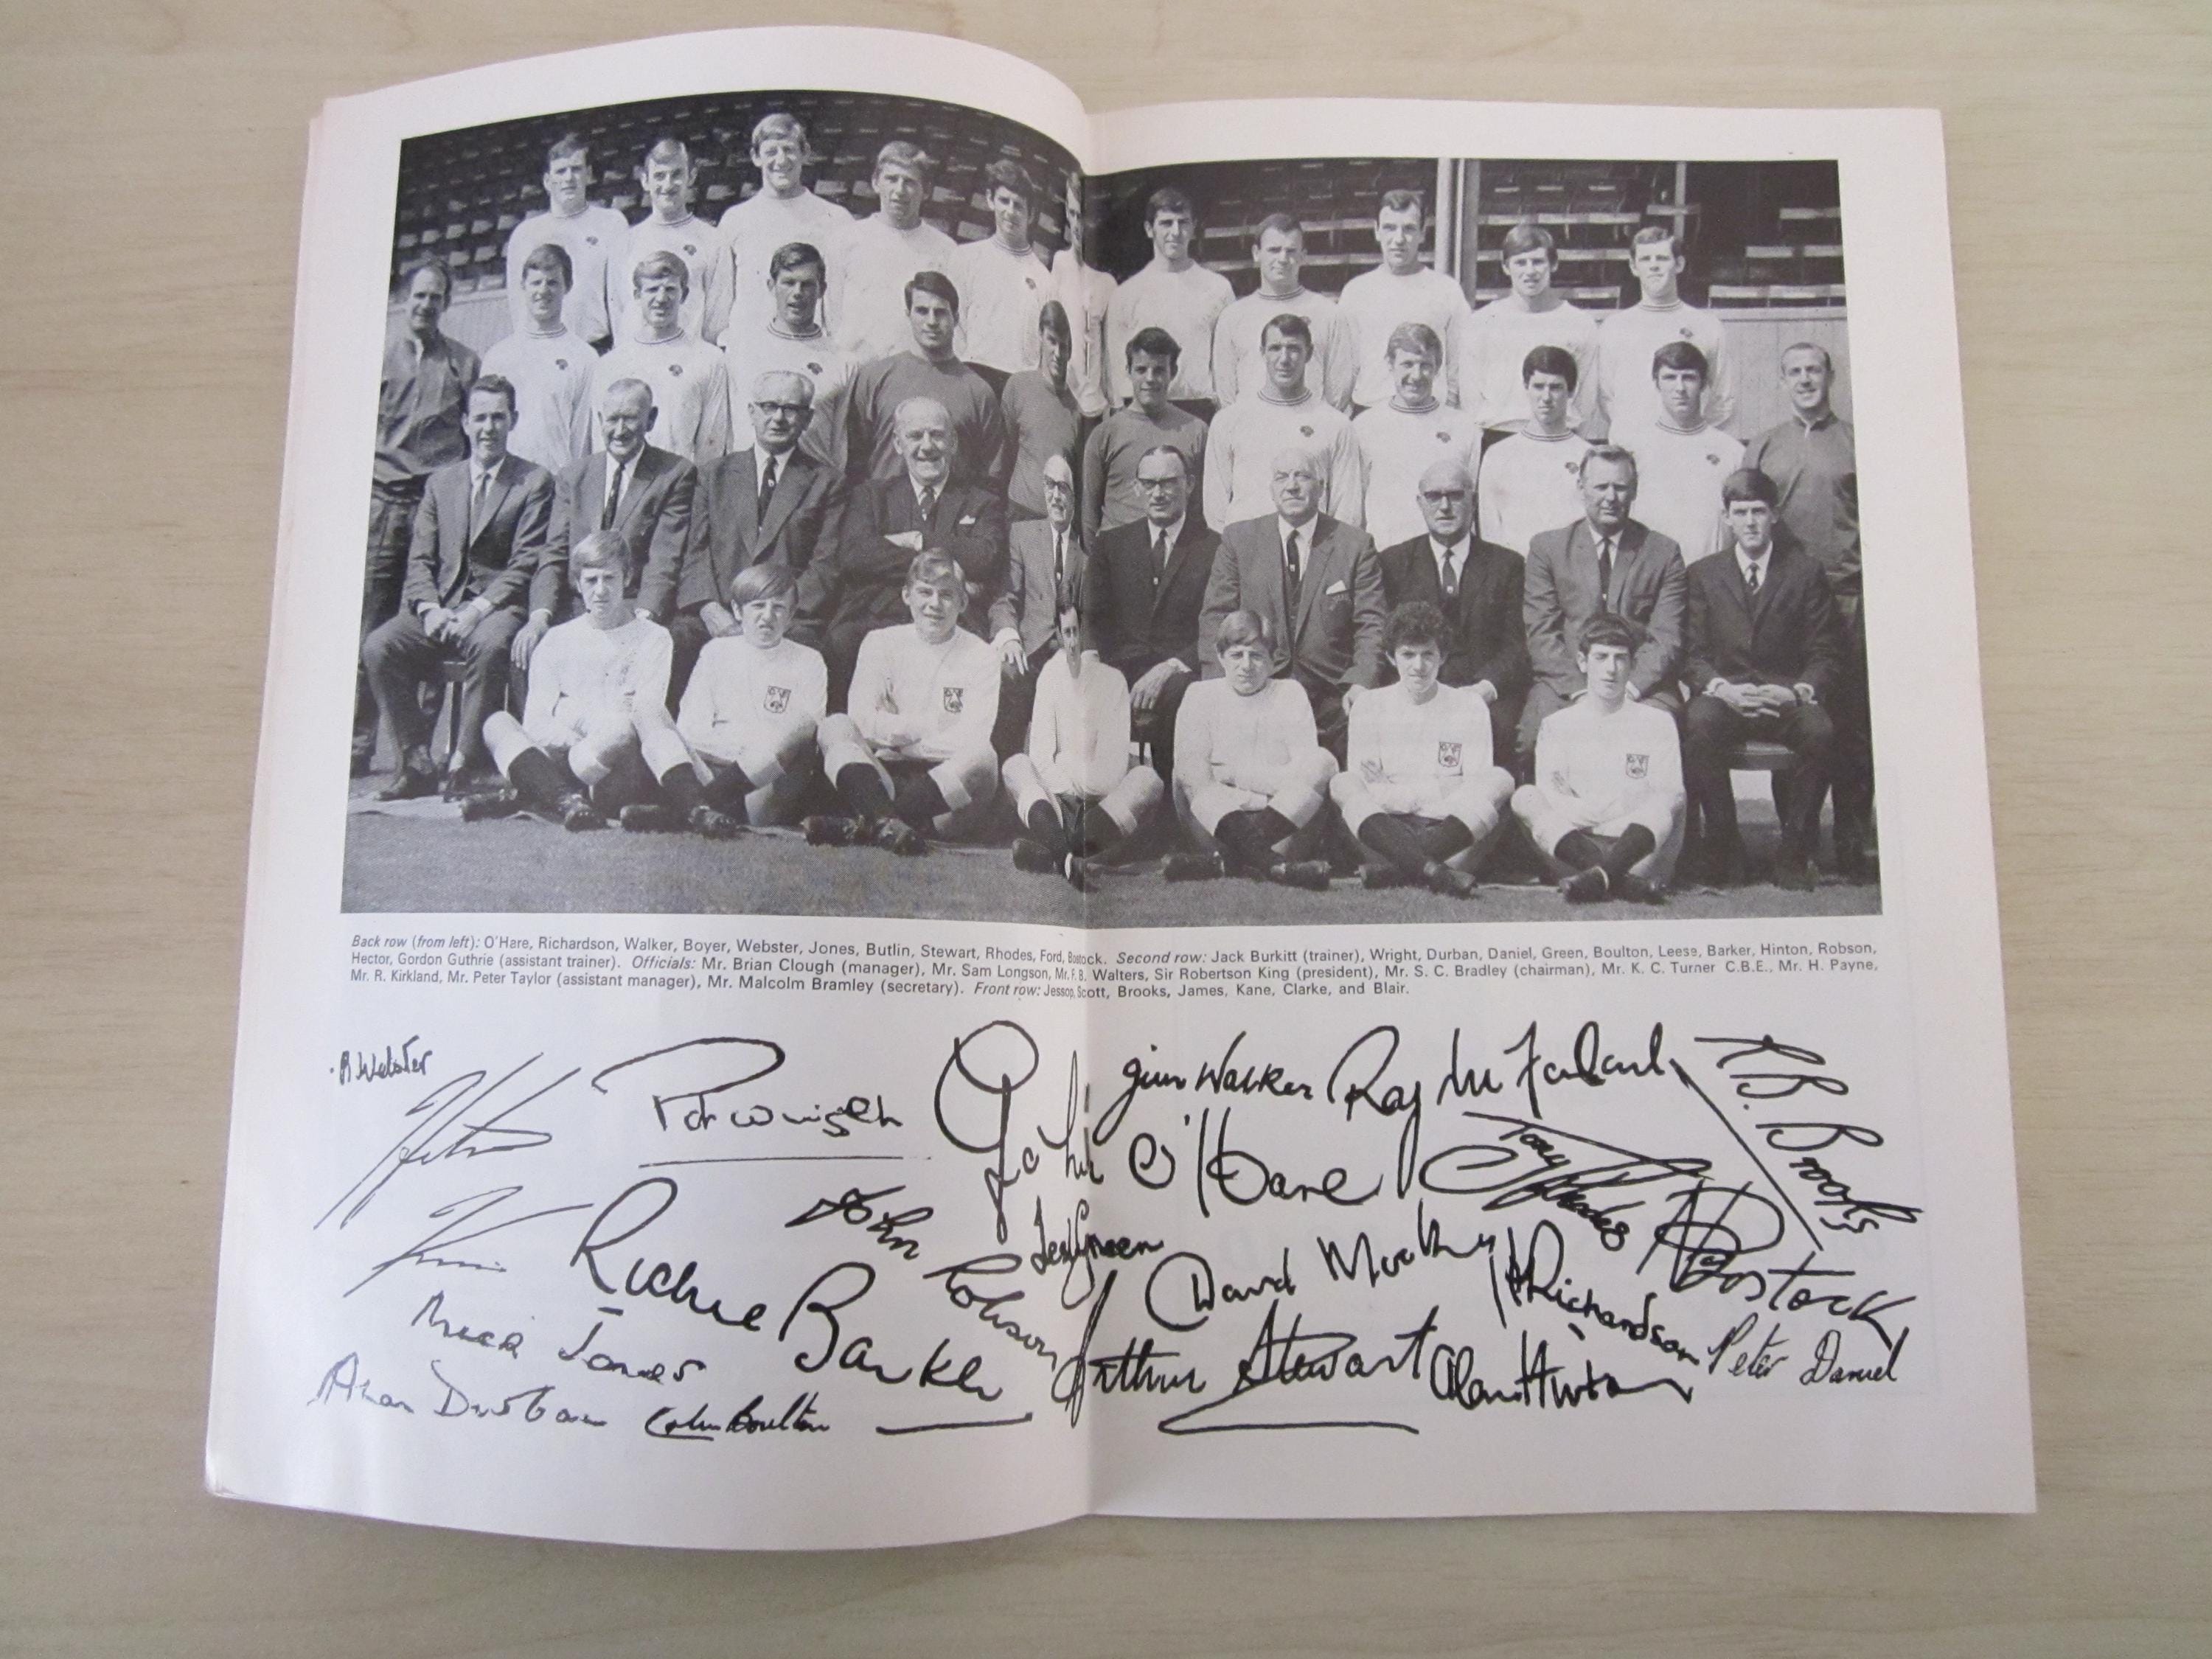 Back row (from left): O'Hare, Richardson, Walker, Boyer, Webster, Jones, Butlin, Stewart, Rhodes, Ford, Bostock. Second row: Jack Burkitt (trainer), Wright, Durban, Daniel, Green, Boulton, Leese, Barker, Hinton, Robson,
Hector, Gordon Guthrie (assistant trainer). Officials: Mr. Brian Clough (manager), Mr. Sam Longson, Mr. F. B. Walters, Sir Robertson King (president), Mr. S. C. Bradley (chairman), Mr. K. C. Turner C.B.E., Mr. H. Payne,
Mr. R. Kirkland, Mr. Peter Taylor (assistant manager), Mr. Malcolm Bramley (secretary). Front row: Jessop, Scott, Brooks, James, Kane, Clarke, and Blair.
R Webster
Pat Wright
John O'Hare
Jim Walker
Ray McFarland
R. B. Brooks
Tony Rhodes
Les Green
John Robson
Richie Barker
David
Richardson
Bostock
Jones
Arthur Stewart
Alan Hinton
Peter Daniel
Alan Durban
Colin Boulton